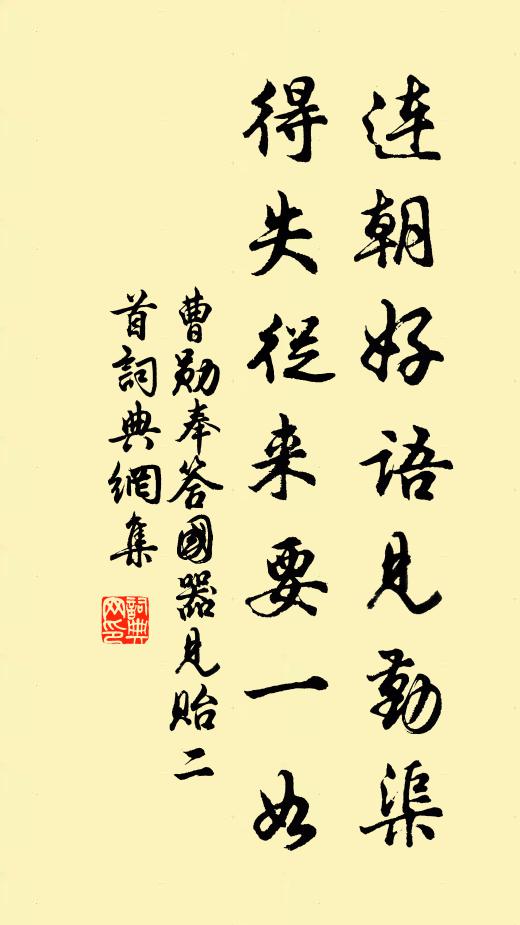 連朝好語見勤渠
得失從来要一如
曹勛奉答國器見貽二
首詞典網集
詞典
网印